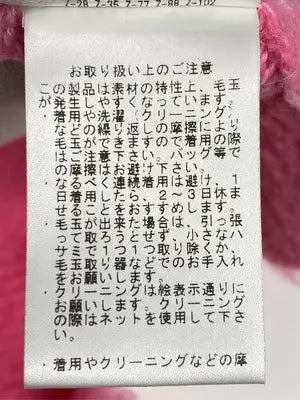 7-29 7-35 7-77 7-88 7-102
お取り扱い上のご注意
この製品は素材の特性上、毛玉
が発生しやすくなっています。
・着用や洗濯(クリーニング)
などの繰り返しの摩擦により
毛玉ができますので着用の際
はご注意下さい。バッグ等で
の摩擦はお避け下さい。
・なるべく連続着用は避け、1
日着用したら、2～3日休ま
せることをおすすめします。
・毛玉が出来た場合は、引っ張
って取ろうとせず、小さなハ
サミで1つ1つ取り除くか、
毛玉取り器などでのお手入れ
をお願いします。
・クリーニングは絵表示通りに
お願いします。クリーニング
の際はネットを使用して下さ
い。
・着用やクリーニングなどの摩